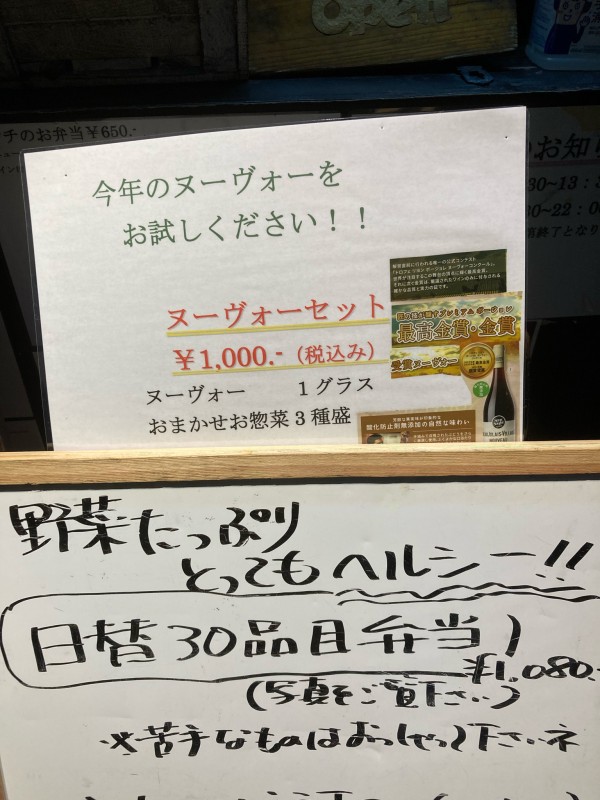 Open
チのお弁当￥650.-
のお知ら
30~13：3
30~22：0
終了となり
今年のヌーヴォーを
お試しください！！
ヌーヴォーセット
￥1,000.-（税込み）
ヌーヴォー　　１グラス
おまかせお惣菜３種盛
最高金賞・金賞
受賞ヌーヴォー
酸化防止剤無添加の自然な味わい
野菜たっぷり
とってもヘルシー!!
日替30品目弁当
¥1,080.-
(写真をご覧下さい)
※苦手なものはおっしゃって下さいネ